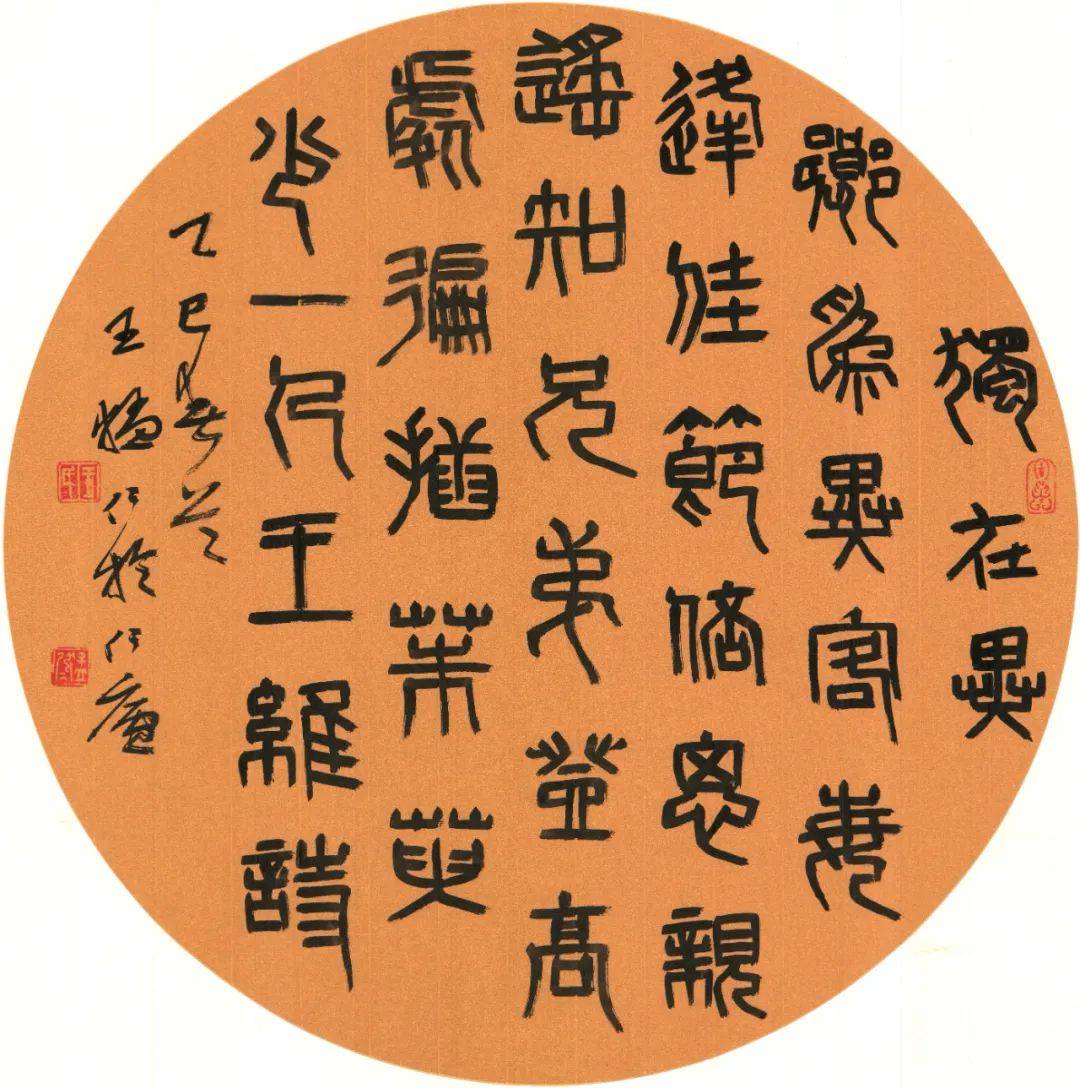 獨在異
鄉為異客每
逢佳節倍思親
遙知兄弟登高
處徧插茱萸
少一人王維詩
乙巳春
王於庵